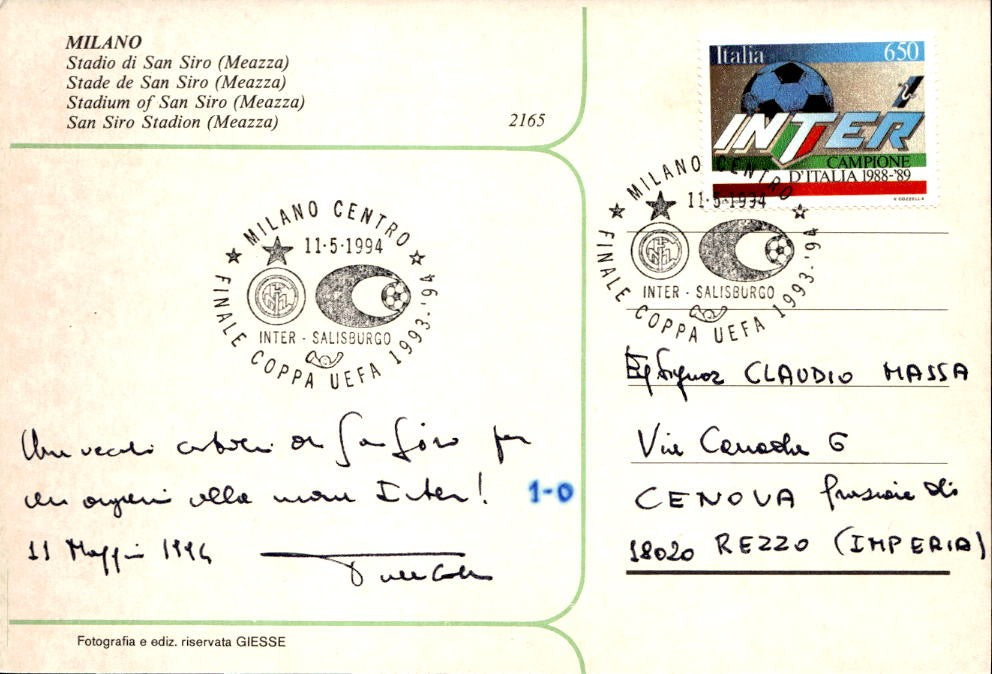 MILANO
Stadio di San Siro (Meazza)
Stade de San Siro (Meazza)
Stadium of San Siro (Meazza)
San Siro Stadion (Meazza)
2165
Italia 650
INTER
CAMPIONE
D'ITALIA 1988-'89
V. COZZELLA
MILANO CENTRO
11·5·1994
INTER - SALISBURGO
FINALE COPPA UEFA 1993-'94
MILANO CENTRO
11·5·1994
INTER - SALISBURGO
FINALE COPPA UEFA 1993-'94
Una di San Siro per
un alla Inter! 1-0
11 Maggio 1994
Signor CLAUDIO MASSA
Via 6
CENOVA frazione di
18020 REZZO (IMPERIA)
Fotografia e ediz. riservata GIESSE